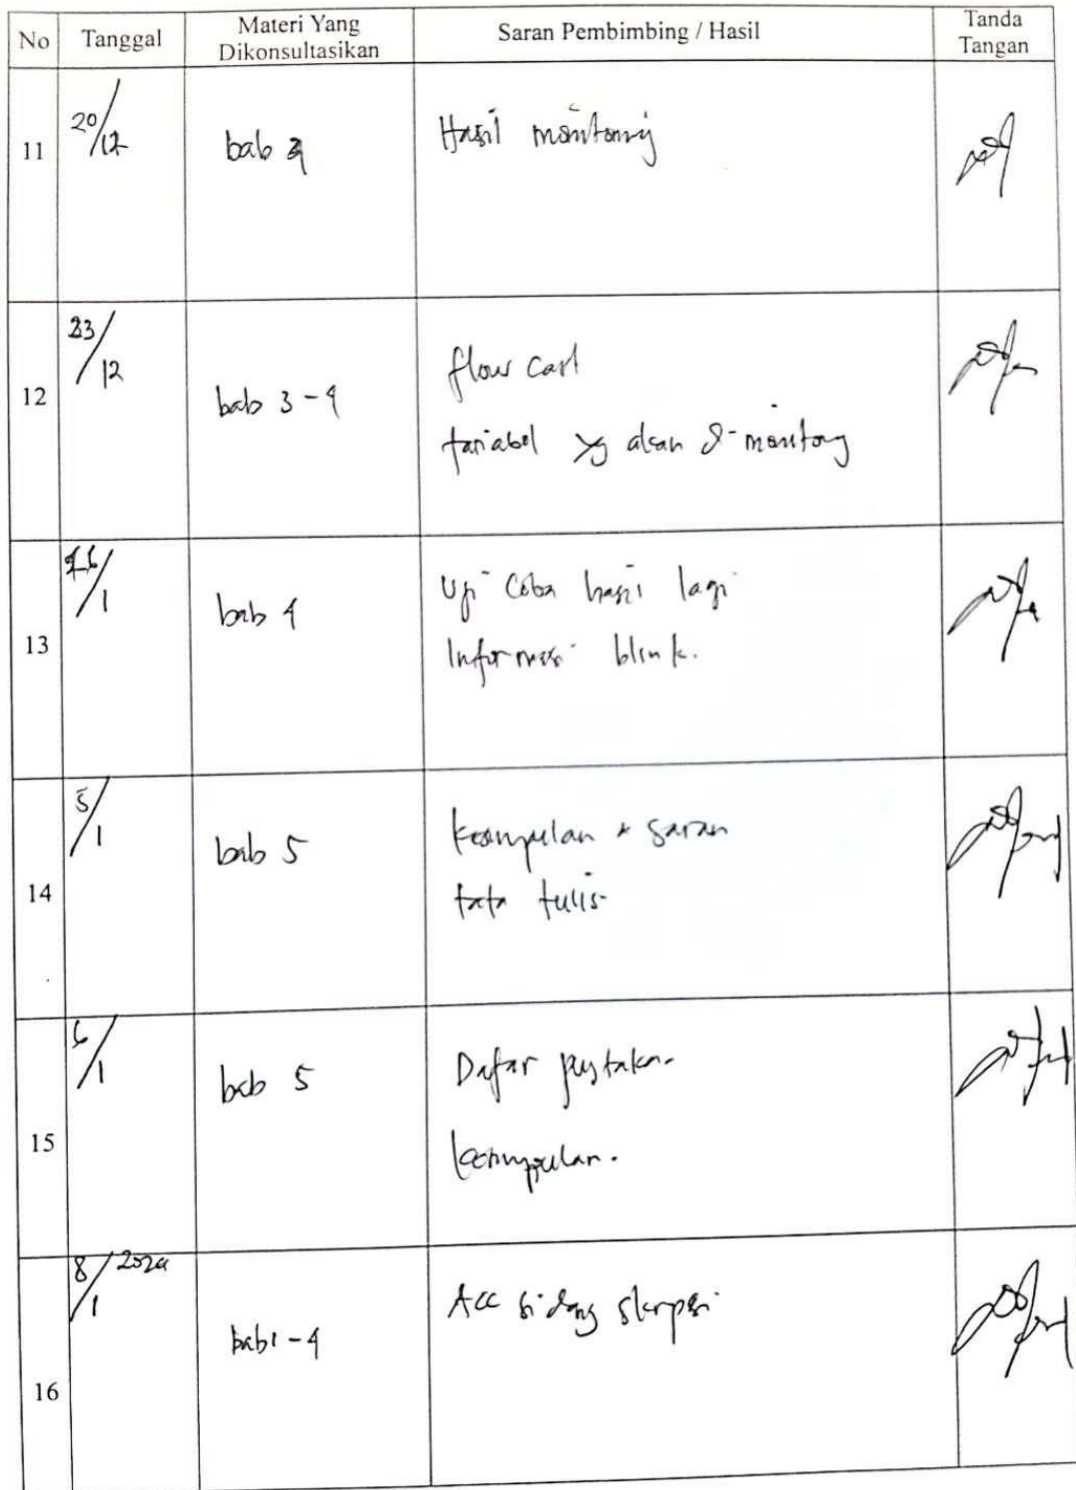 No Tanggal Materi Yang Dikonsultasikan Saran Pembimbing / Hasil Tanda Tangan
11 20/12 bab Hasil
12 23/12 bab 3-4 flow cart
yg akan
13 /1 bab 4 Uji Coba hasil lagi
Informasi blink.
14 5/1 bab 5 kesimpulan & saran
tata tulis
15 6/1 bab 5 Daftar pustaka
kesimpulan.
16 8/1 bab 1-4 Acc sidang skripsi